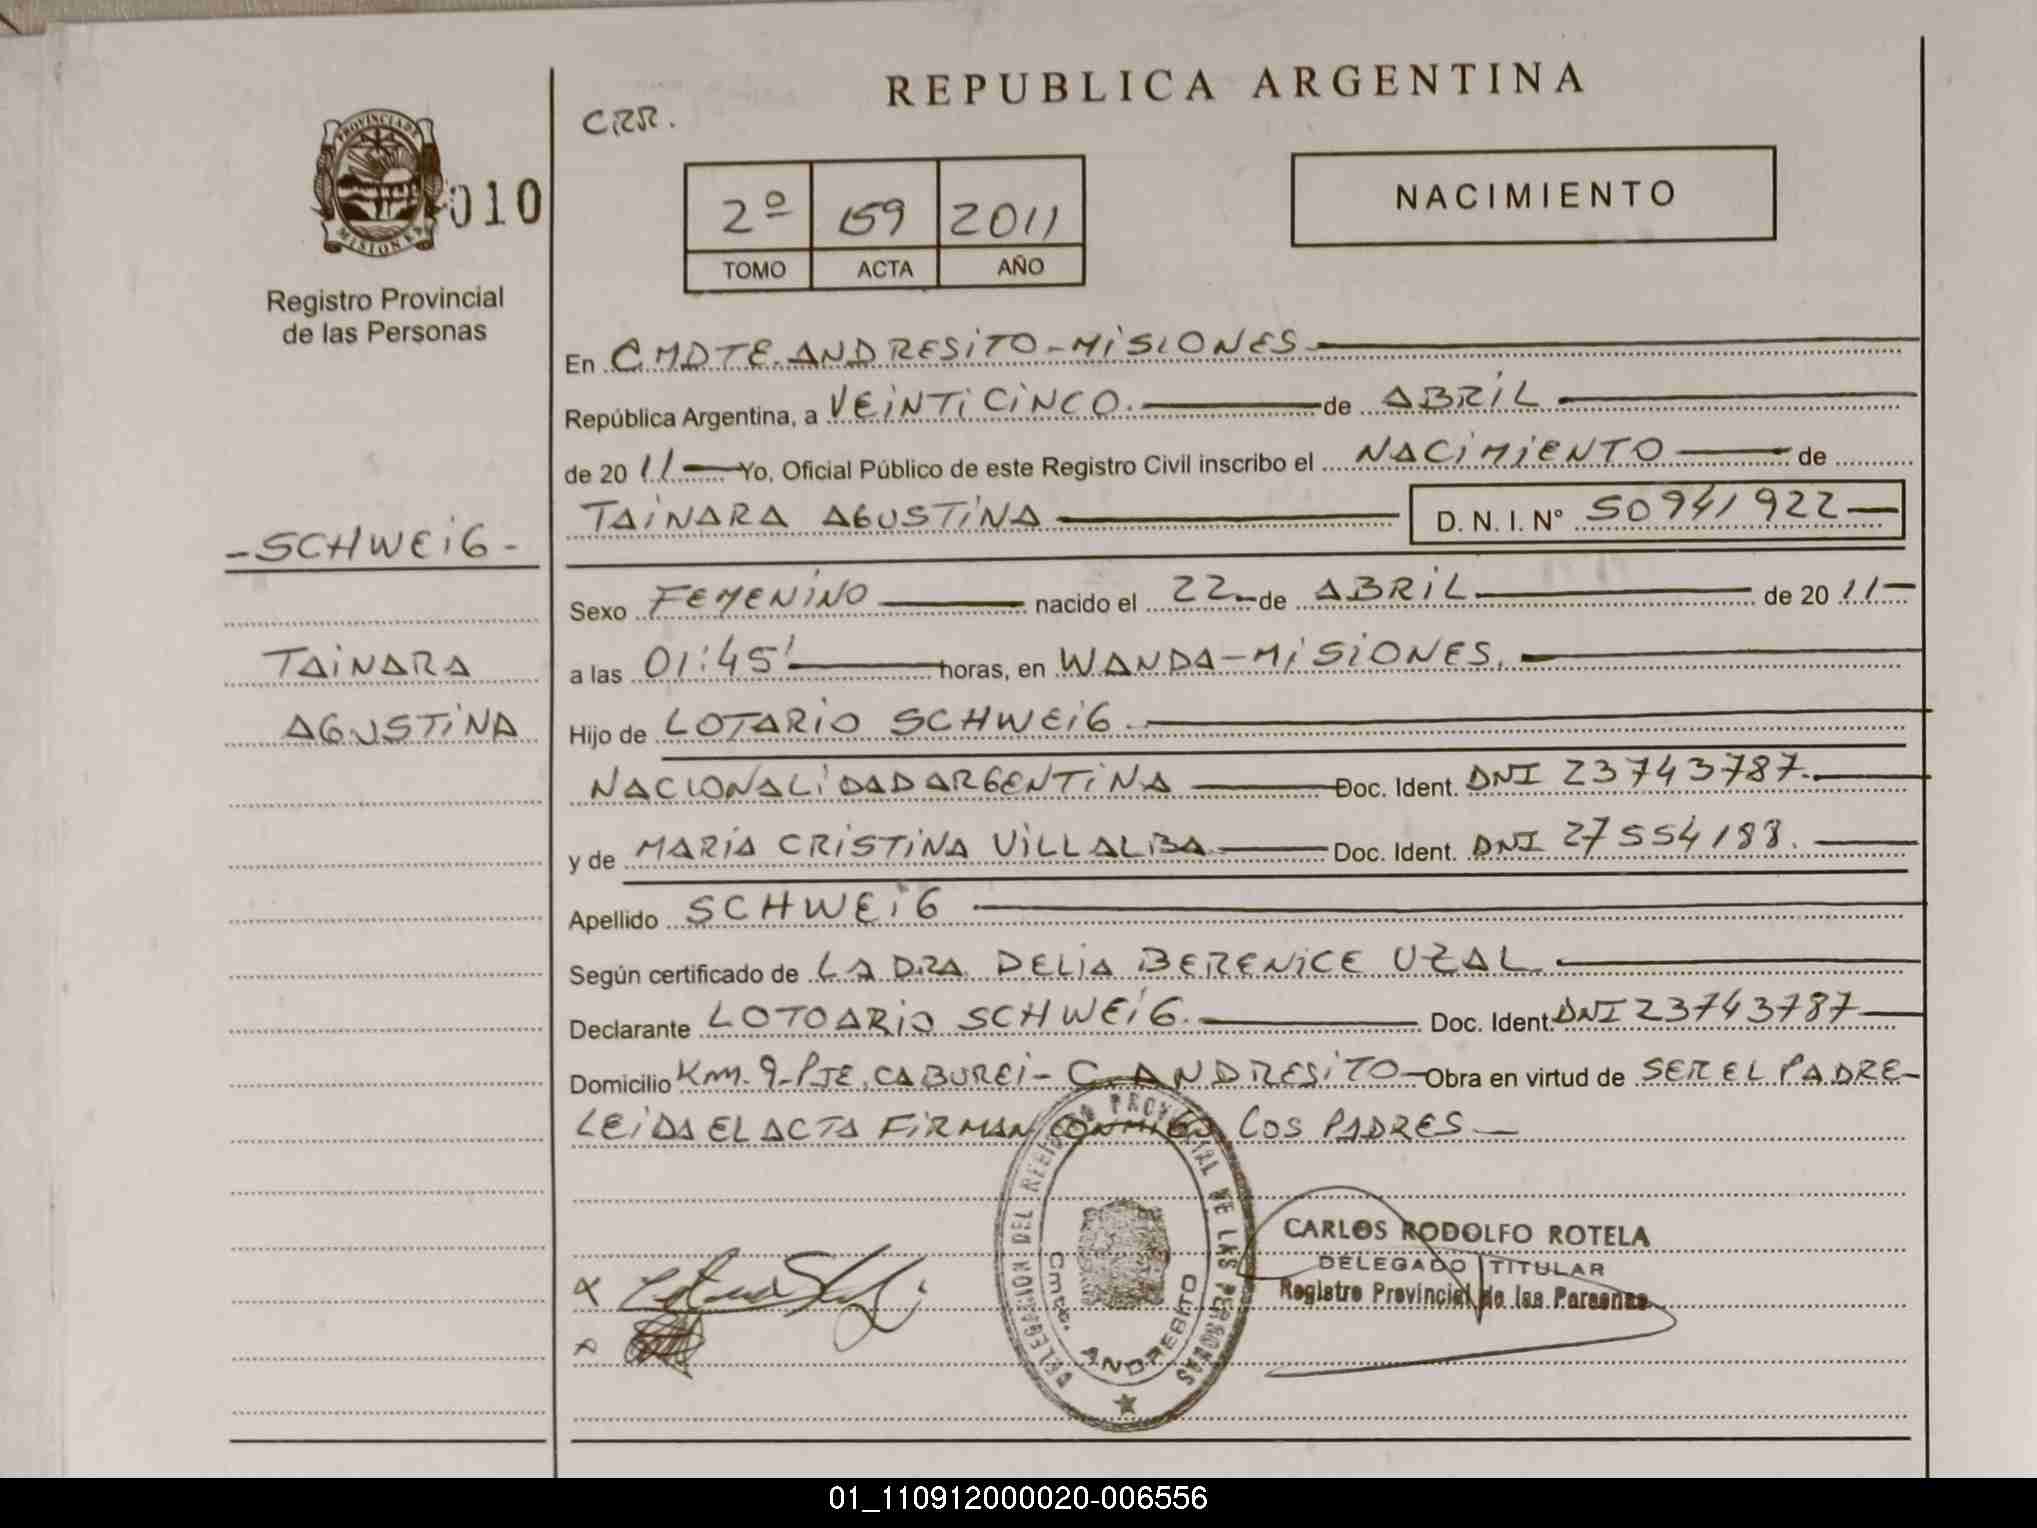 REPUBLICA ARGENTINA
CRR.
PROVINCIA DE
MISIONES
010
Registro Provincial
de las Personas
2º 159 2011
TOMO ACTA AÑO
NACIMIENTO
En CMDTE. ANDRESITO - MISIONES
República Argentina, a VEINTICINCO. de ABRIL
de 2011 Yo, Oficial Público de este Registro Civil inscribo el NACIMIENTO de
TAINARA AGUSTINA D. N. I. N° 50941922
- SCHWEIG -
TAINARA
AGUSTINA
Sexo FEMENINO nacido el 22 de ABRIL de 2011
a las 01:45' horas, en WANDA - MISIONES.
Hijo de LOTARIO SCHWEIG
NACIONALIDAD ARGENTINA Doc. Ident. DNI 23743787.
y de MARIA CRISTINA VILLALBA Doc. Ident. DNI 27554188.
Apellido SCHWEIG
Según certificado de LA DRA. DELIA BERENICE UZAL
Declarante LOTOARIO SCHWEIG. Doc. Ident. DNI 23743787
Domicilio Km. 9 - PJE. CABUREI - C. ANDRESITO Obra en virtud de SER EL PADRE -
LEIDA EL ACTA FIRMAN CONMIGO LOS PADRES
DELEGACION DEL REGISTRO PROVINCIAL DE LAS PERSONAS
Cmte. ANDRESITO
CARLOS RODOLFO ROTELA
DELEGADO TITULAR
Registro Provincial de las Personas
01_110912000020-006556